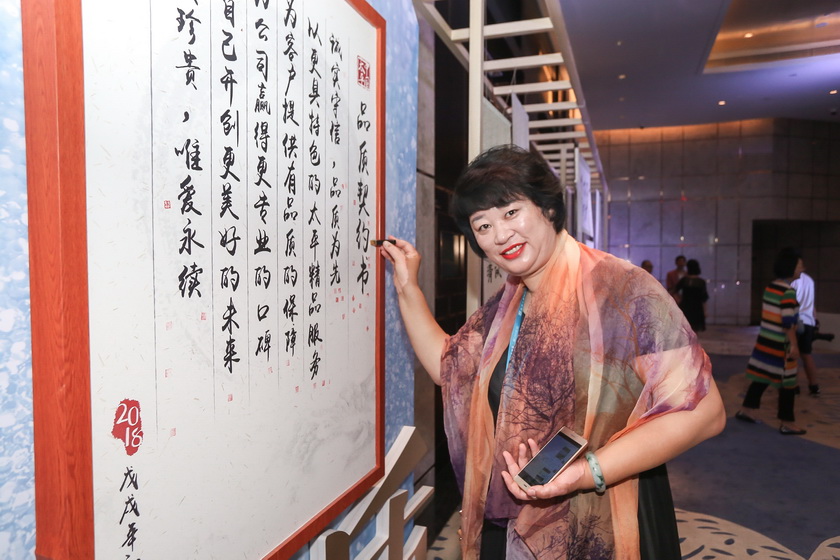 品质契约书
诚实守信，品质为先
以更具特色的太平精品服务
为客户提供有品质的保障
公司赢得更专业的口碑
自己开创更美好的未来
珍贵，唯爱永续
2018
戊戌年